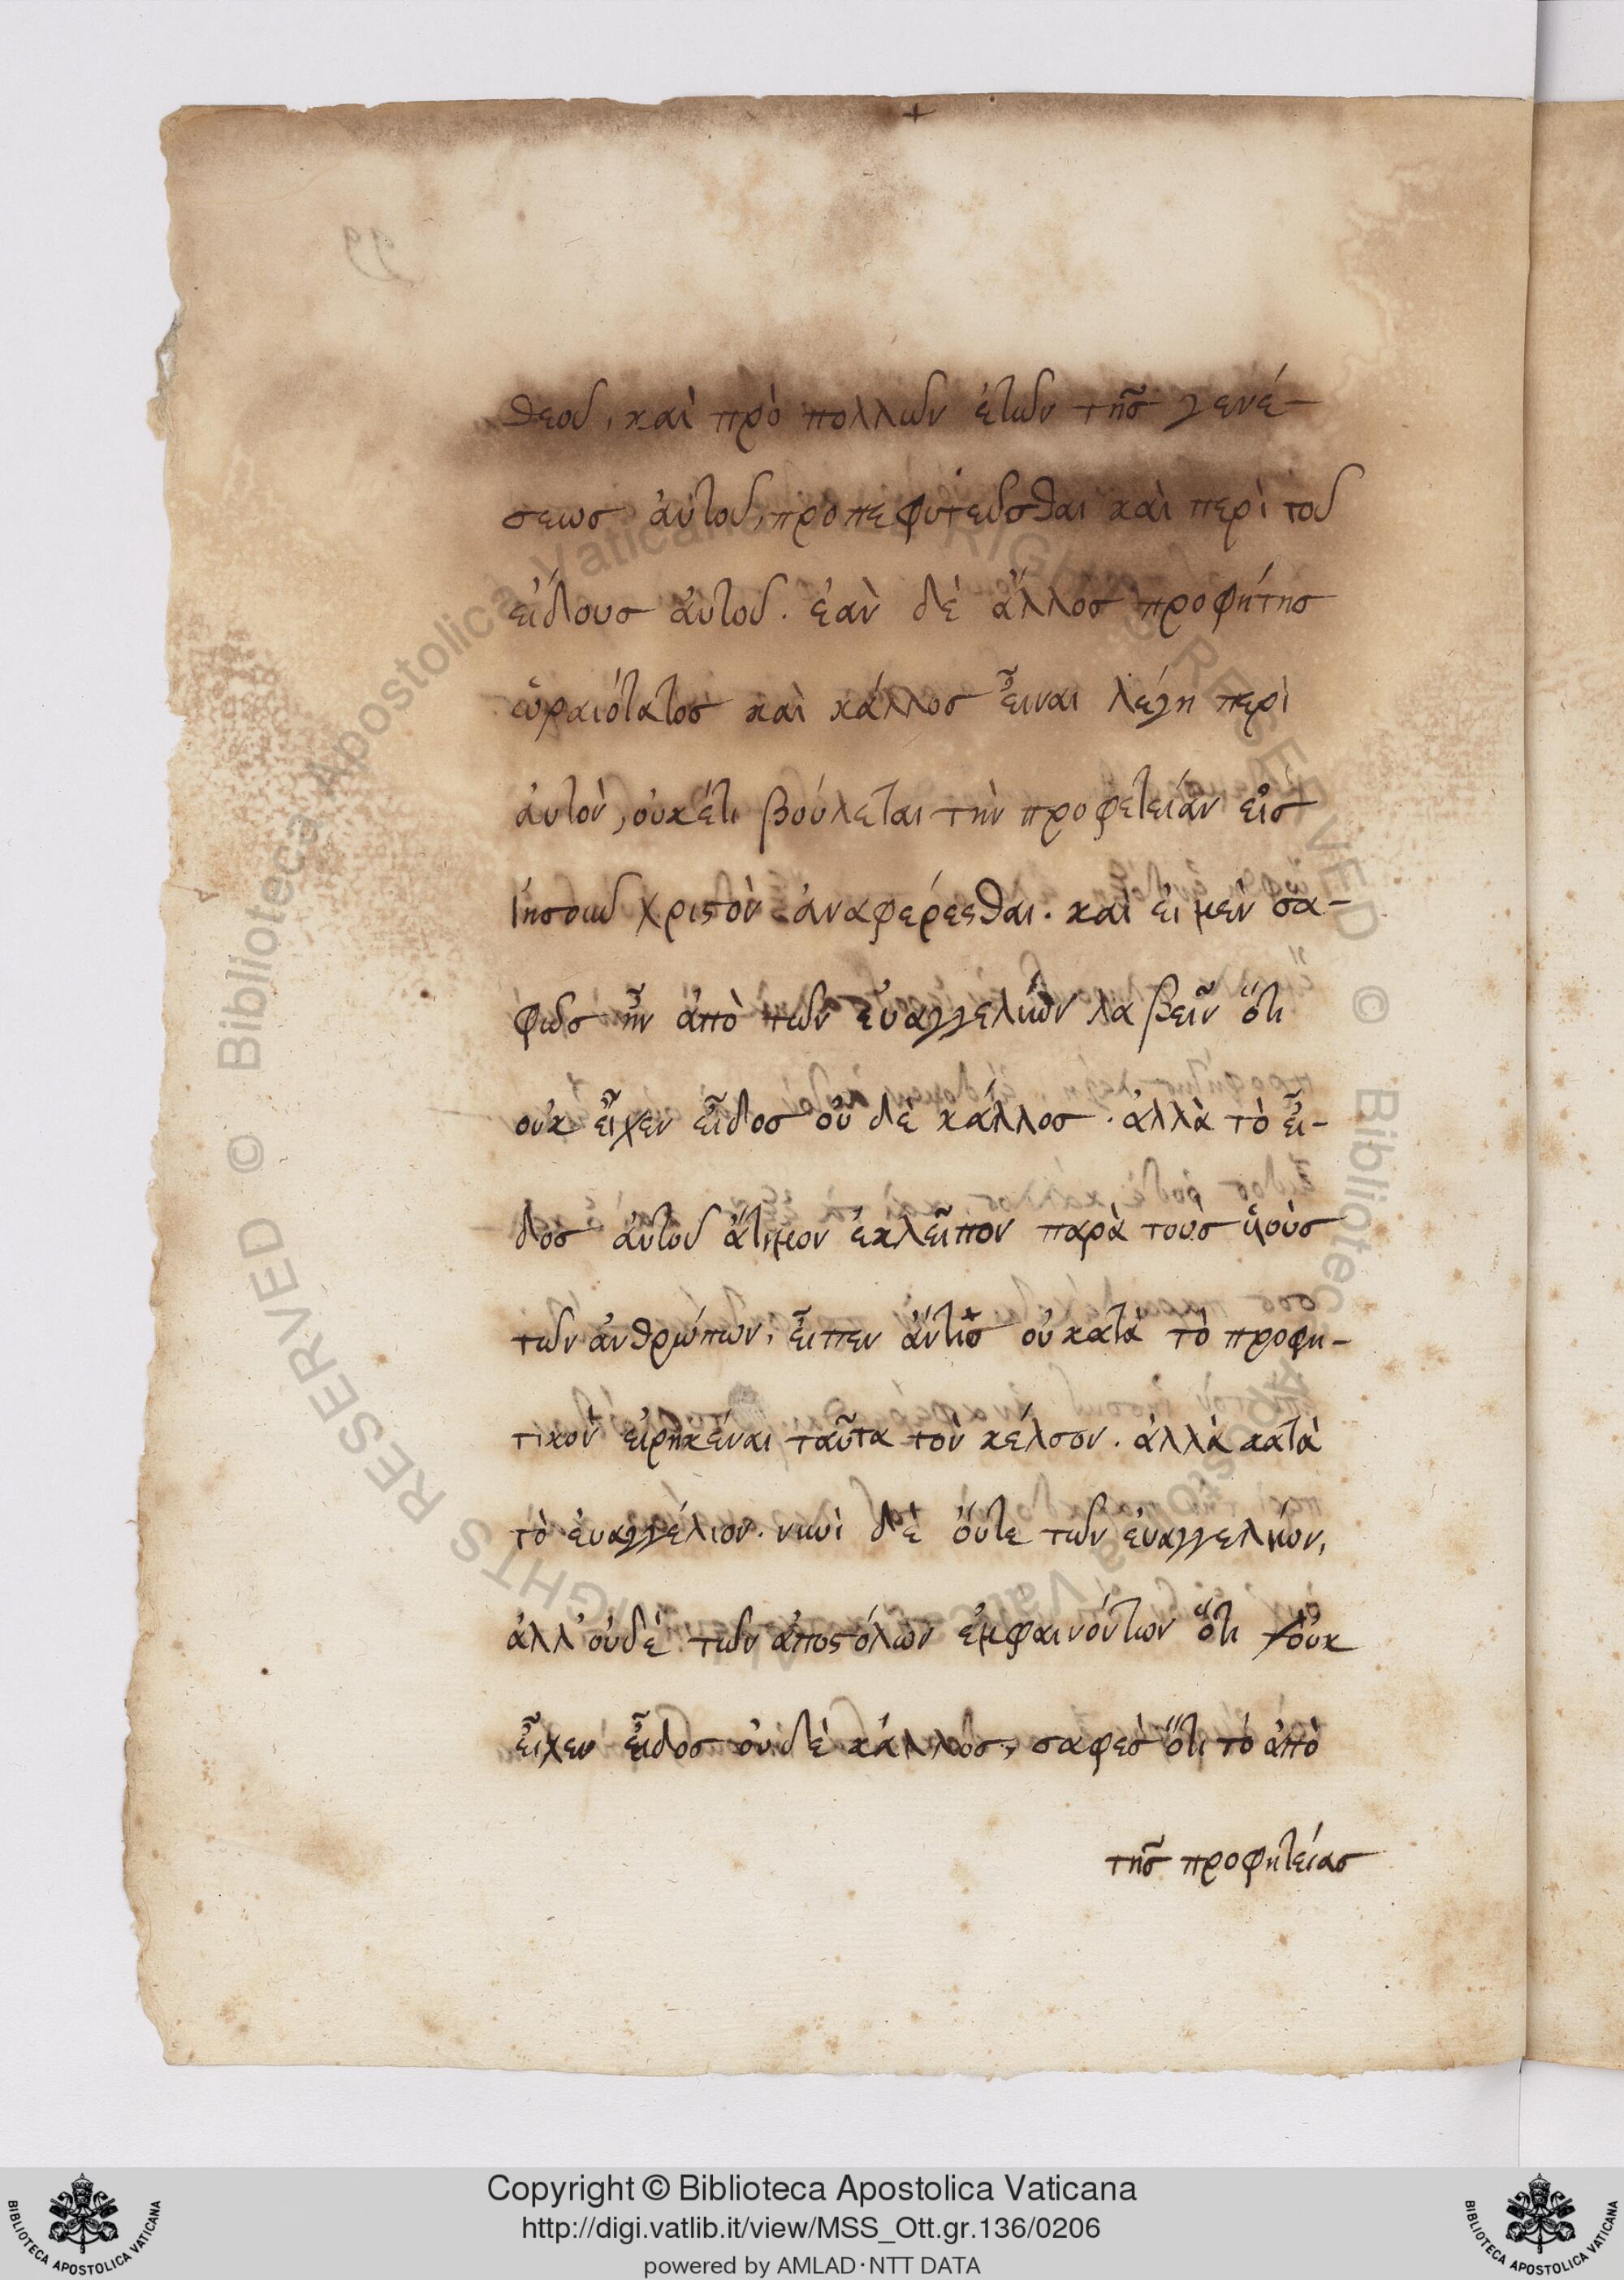 θεοῦ, καὶ πρὸ πολλῶν ἐτῶν τῆσ γενέ-
σεωσ ἀυτοῦ, προπεφυτεῦσθαι καὶ περὶ τοῦ
εἴδουσ ἀυτοῦ. ἐὰν δὲ ἄλλοσ προφήτησ
ὡραιότατοσ καὶ κάλλοσ εἶναι λέγη περὶ
ἀυτὸν, ὀυκέτι βούλεται τὴν προφετείαν εἰσ
Ιησοῦν χριστὸν ἀναφέρεσθαι. καὶ ἐι μὲν σα-
φῶσ ἦν ἀπὸ τῶν ἐυαγγελίων λαβεῖν ὅτι
ουκ εἶχεν εἶδοσ οὐ δὲ κάλλοσ. ἀλλὰ τὸ εἶ-
δοσ ἀυτοῦ ἄτιμον ἐκλεῖπον παρὰ τοὺσ ὑιοὺσ
τῶν ἀνθρώπων, εἶπεν ἄντισ οὐ κατὰ τὸ προφη-
τικὸν εἰρηκέναι ταῦτα τὸν κέλσον. ἀλλὰ κατὰ
τὸ ἐυαγγέλιον. νυνὶ δὲ ὄυτε τῶν ἐυαγγελίων,
ἀλλ' οὐδὲ τῶν ἀποστόλων ἐμφαινόντων ὅτι οὐκ
εἶχεν εἶδοσ ὀυδὲ κάλλοσ, σαφὲσ ὅτι τὸ ἀπὸ
τῆσ προφητείασ
Copyright © Biblioteca Apostolica Vaticana
http://digi.vatlib.it/view/MSS_Ott.gr.136/0206
powered by AMLAD·NTT DATA
BIBLIOTECA APOSTOLICA VATICANA
BIBLIOTECA APOSTOLICA VATICANA